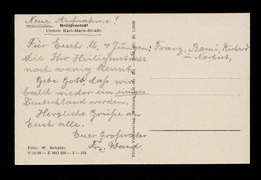 Neue Aufnahme!
Heiligenstadt
Untere Karl-Marx-Straße
Für Euch M. 4 Jungen: Franz, Benni, Richard
u. Norbert,
die Ihr Heiligenstadt
noch wenig kennt.
Gebe Gott, daß wir
bald wieder ein einiges
Deutschland werden.
Herzliche Grüße an
Euch alle.
Euer Großvater
Foto: W. Schäfer